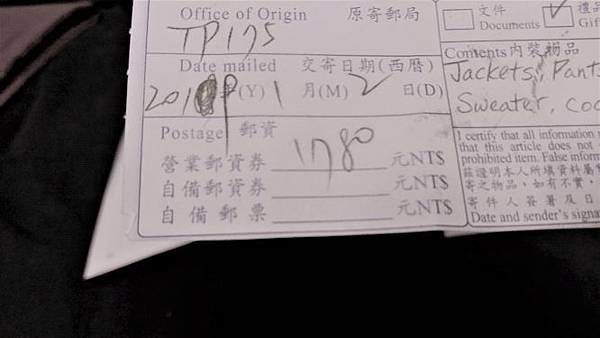 Office of Origin 原寄郵局
TP175
Date mailed 交寄日期(西曆)
2019年(Y) 1 月(M) 2 日(D)
Postage 郵資
營業郵資券 1780 元NT$
自備郵資券 元NT$
自備郵票 元NT$
文件
Documents
禮品
Gif
Contents內裝物品
Jackets, Pant
Sweater, coo
I certify that all information
that this article does not
prohibited item. False inform
茲證明本人所填資料屬
寄之物品,如有不實,
寄件人簽署及日
Date and sender's signa